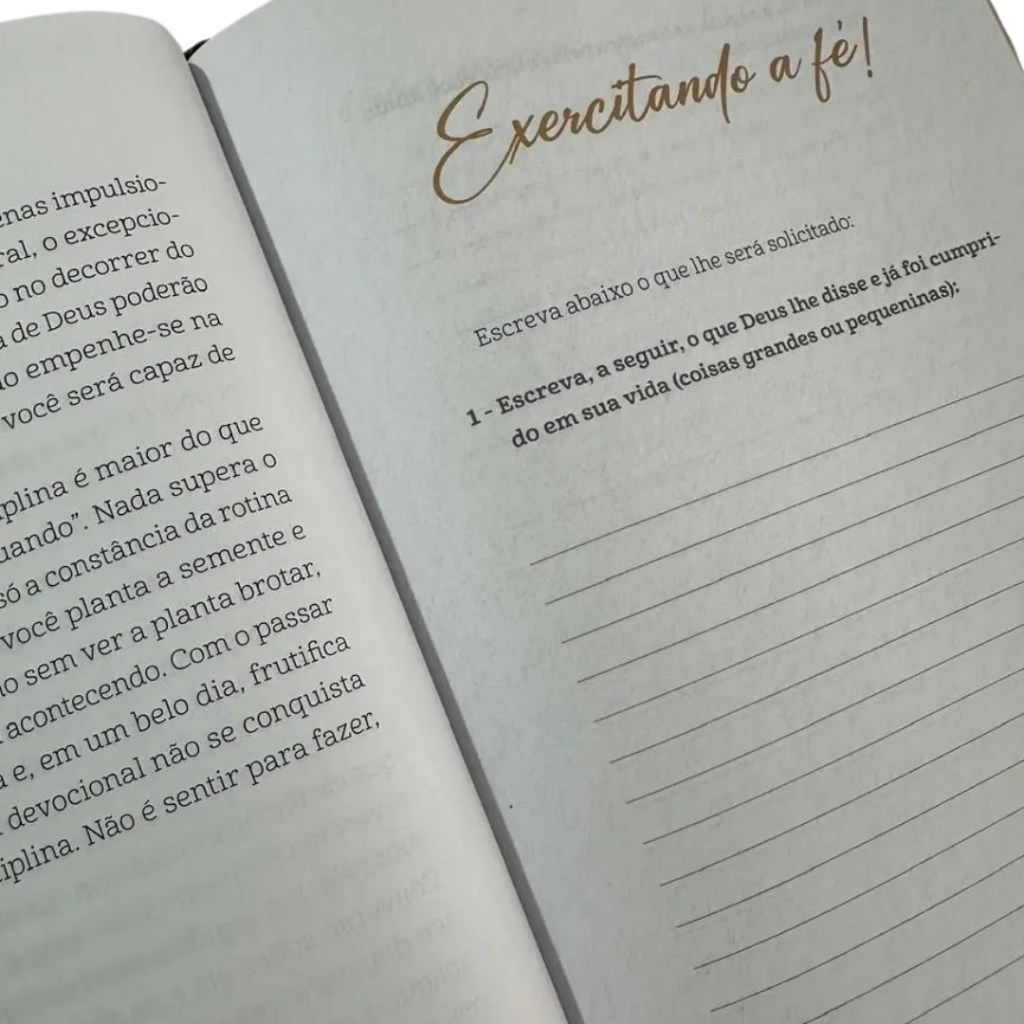 impulsio-
o excepcio-
no decorrer do
de Deus poderão
empenhe-se na
você será capaz de
é maior do que
Nada supera o
só a constância da rotina
você planta a semente e
sem ver a planta brotar,
acontecendo. Com o passar
e, em um belo dia, frutifica
devocional não se conquista
Não é sentir para fazer,
Exercitando a fé!
Escreva abaixo o que lhe será solicitado:
1 - Escreva, a seguir, o que Deus lhe disse e já foi cumpri-
do em sua vida (coisas grandes ou pequeninas):